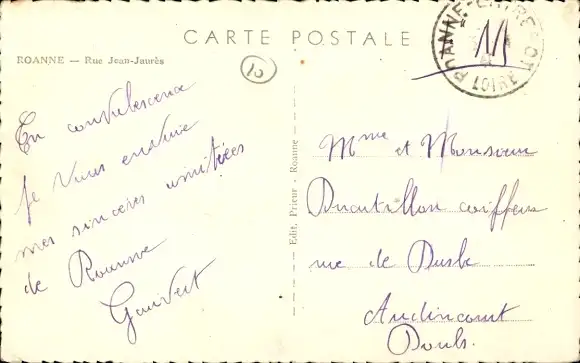 CARTE POSTALE
ROANNE — Rue Jean-Jaurès
10
En convalescence
Je vous envoie
mes sincères amitiées
de Roanne
Gauvert
Edit. Prieur - Roanne -
ROANNE
LOIRE
Mme et Monsieur
coiffeur
rue de
Audincourt
Doubs.